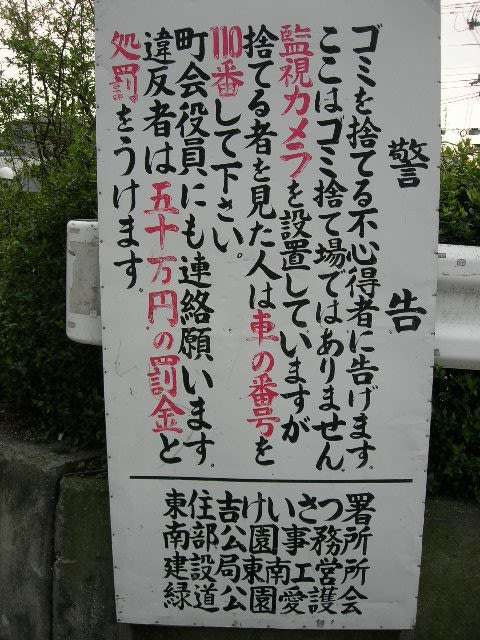 警告
ゴミを捨てる不心得者に告げます。
ここはゴミ捨て場ではありません
監視カメラを設置していますが
捨てる者を見た人は車の番号を
110番して下さい。
町会役員にも連絡願います。
違反者は五十万円の罰金と
処罰をうけます。
東住吉けいさつ署
南部公園事務所
建設局東南工営所
緑道公園愛護会